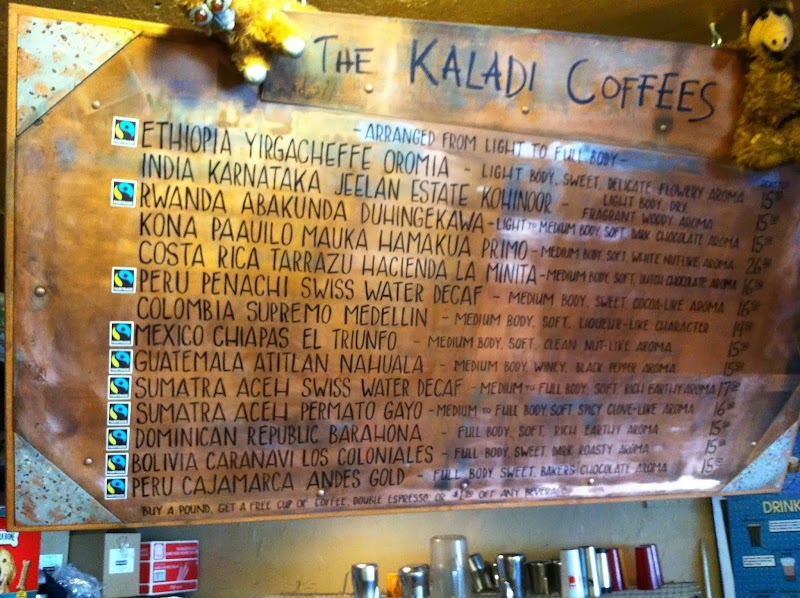 THE KALADI COFFEES
-ARRANGED FROM LIGHT TO FULL BODY-
ETHIOPIA YIRGACHEFFE OROMIA - LIGHT BODY, SWEET, DELICATE FLOWERY AROMA 15⁵⁰
INDIA KARNATAKA JEELAN ESTATE KOHINOOR - LIGHT BODY, DRY, FRAGRANT WOODY AROMA 15⁵⁰
RWANDA ABAKUNDA DUHINGEKAWA - LIGHT TO MEDIUM BODY, SOFT, DARK CHOCOLATE AROMA 15⁵⁰
KONA PAAUILO MAUKA HAMAKUA PRIMO - MEDIUM BODY, SOFT, WHITE NUTLIKE AROMA 26⁵⁰
COSTA RICA TARRAZU HACIENDA LA MINITA - MEDIUM BODY, SOFT, DUTCH CHOCOLATE AROMA 16⁵⁰
PERU PENACHI SWISS WATER DECAF - MEDIUM BODY, SWEET, COCOA-LIKE AROMA 16⁵⁰
COLOMBIA SUPREMO MEDELLIN - MEDIUM BODY, SOFT, LIQUEUR-LIKE CHARACTER 14⁵⁰
MEXICO CHIAPAS EL TRIUNFO - MEDIUM BODY, SOFT, CLEAN NUT-LIKE AROMA 15⁵⁰
GUATEMALA ATITLAN NAHUALA - MEDIUM BODY, WINEY, BLACK PEPPER AROMA 15⁵⁰
SUMATRA ACEH SWISS WATER DECAF - MEDIUM TO FULL BODY, SOFT, RICH EARTHY AROMA 17⁵⁰
SUMATRA ACEH PERMATO GAYO - MEDIUM TO FULL BODY, SOFT SPICY CLOVE-LIKE AROMA 16⁵⁰
DOMINICAN REPUBLIC BARAHONA - FULL BODY, SOFT, RICH EARTHY AROMA 15⁵⁰
BOLIVIA CARANAVI LOS COLONIALES - FULL BODY, SWEET, DARK ROASTY AROMA 15⁵⁰
PERU CAJAMARCA ANDES GOLD - FULL BODY, SWEET, BAKERS CHOCOLATE AROMA 15⁵⁰
BUY A POUND, GET A FREE CUP OF COFFEE, DOUBLE ESPRESSO, OR OFF ANY BEVERAGE
DRINK